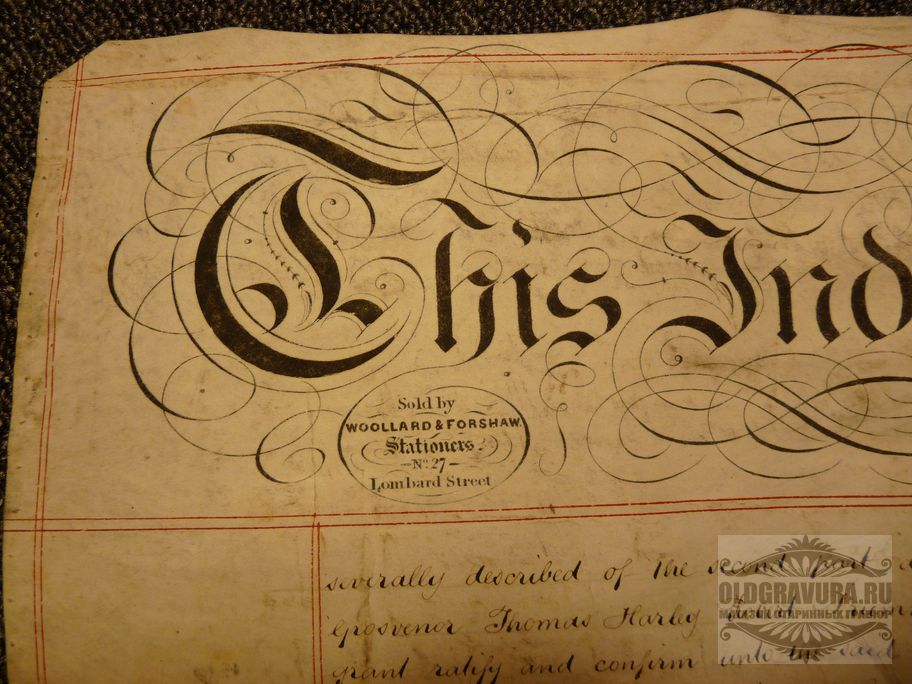 This Ind
Sold by
WOOLLARD & FORSHAW.
Stationers.
No. 27
Lombard Street
severally described of the second part
Grosvenor Thomas Harley
grant ratify and confirm unto the said
OLDGRAVURA.RU
МАГАЗИН СТАРИННЫХ ГРАВЮР